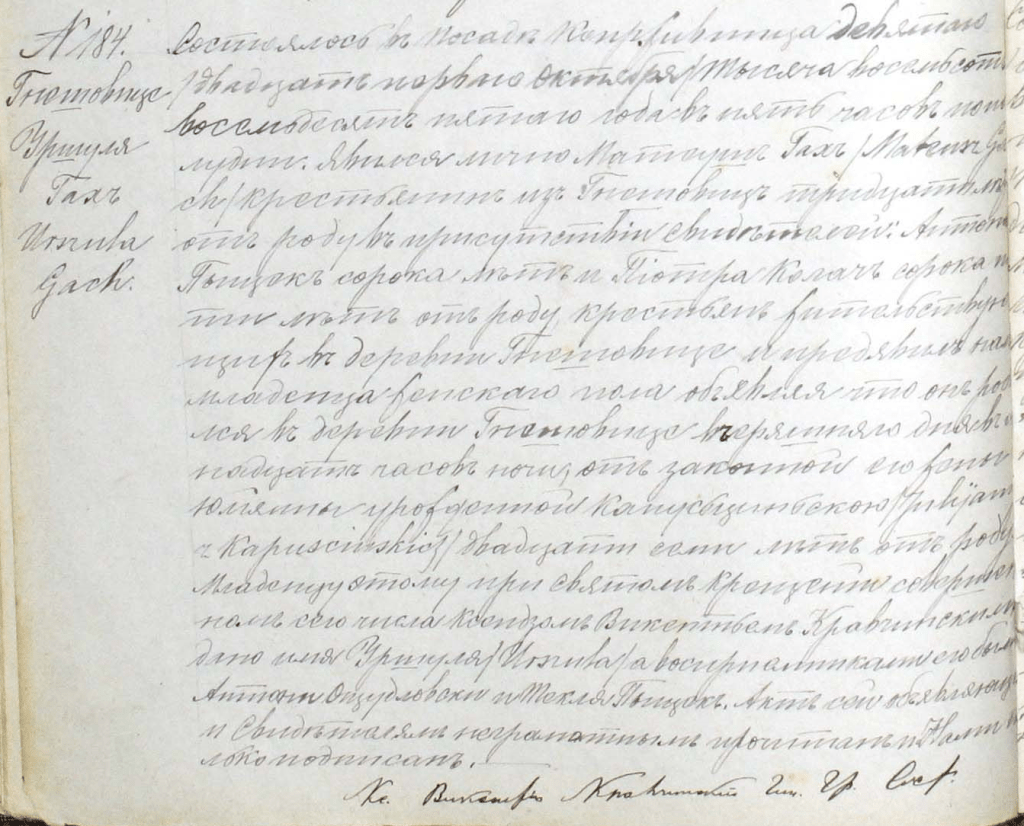 N 184.
Гнетовице
Уршуля
Гахъ
Urszula
Gach.
Состоялось въ посадѣ Копрживница девятаго
/двадцать перваго Октября/ тысяча восемьсотъ
восемьдесятъ пятаго года въ пять часовъ попо
лудни. Явился лично Матеушъ Гахъ /Mateusz Ga
ch/ крестьянинъ изъ Гнетовицъ тридцати лѣтъ
отъ роду въ присутствіи свидѣтелей:
сорока лѣтъ и Піотра Колачъ сорока
ти лѣтъ отъ роду, крестьянъ жительствую
щихъ въ деревни Гнетовице и предявилъ намъ
младенца женскаго пола объявляя что онъ роди
лся въ деревни Гнетовице вчерашняго дня въ
надцать часовъ ночи, отъ законной его жены
Юліянны урожденной Капусциньскою /Julijann
z Kapuscinskich/ двадцати семи лѣтъ отъ роду
Младенцу этому при Святомъ Крещении совершен
номъ сего числа Ксендзомъ Викентьемъ Кравчинскимъ
дано имя Уршуля /Urszula/ а воспріемниками его были
Антони и Текля. Актъ сей объявляющ
и Свидѣтелямъ неграмотнымъ прочитанъ и Нами
лько подписанъ.
Кс. Викентій Кравчинский Чин. Гр. Сост.